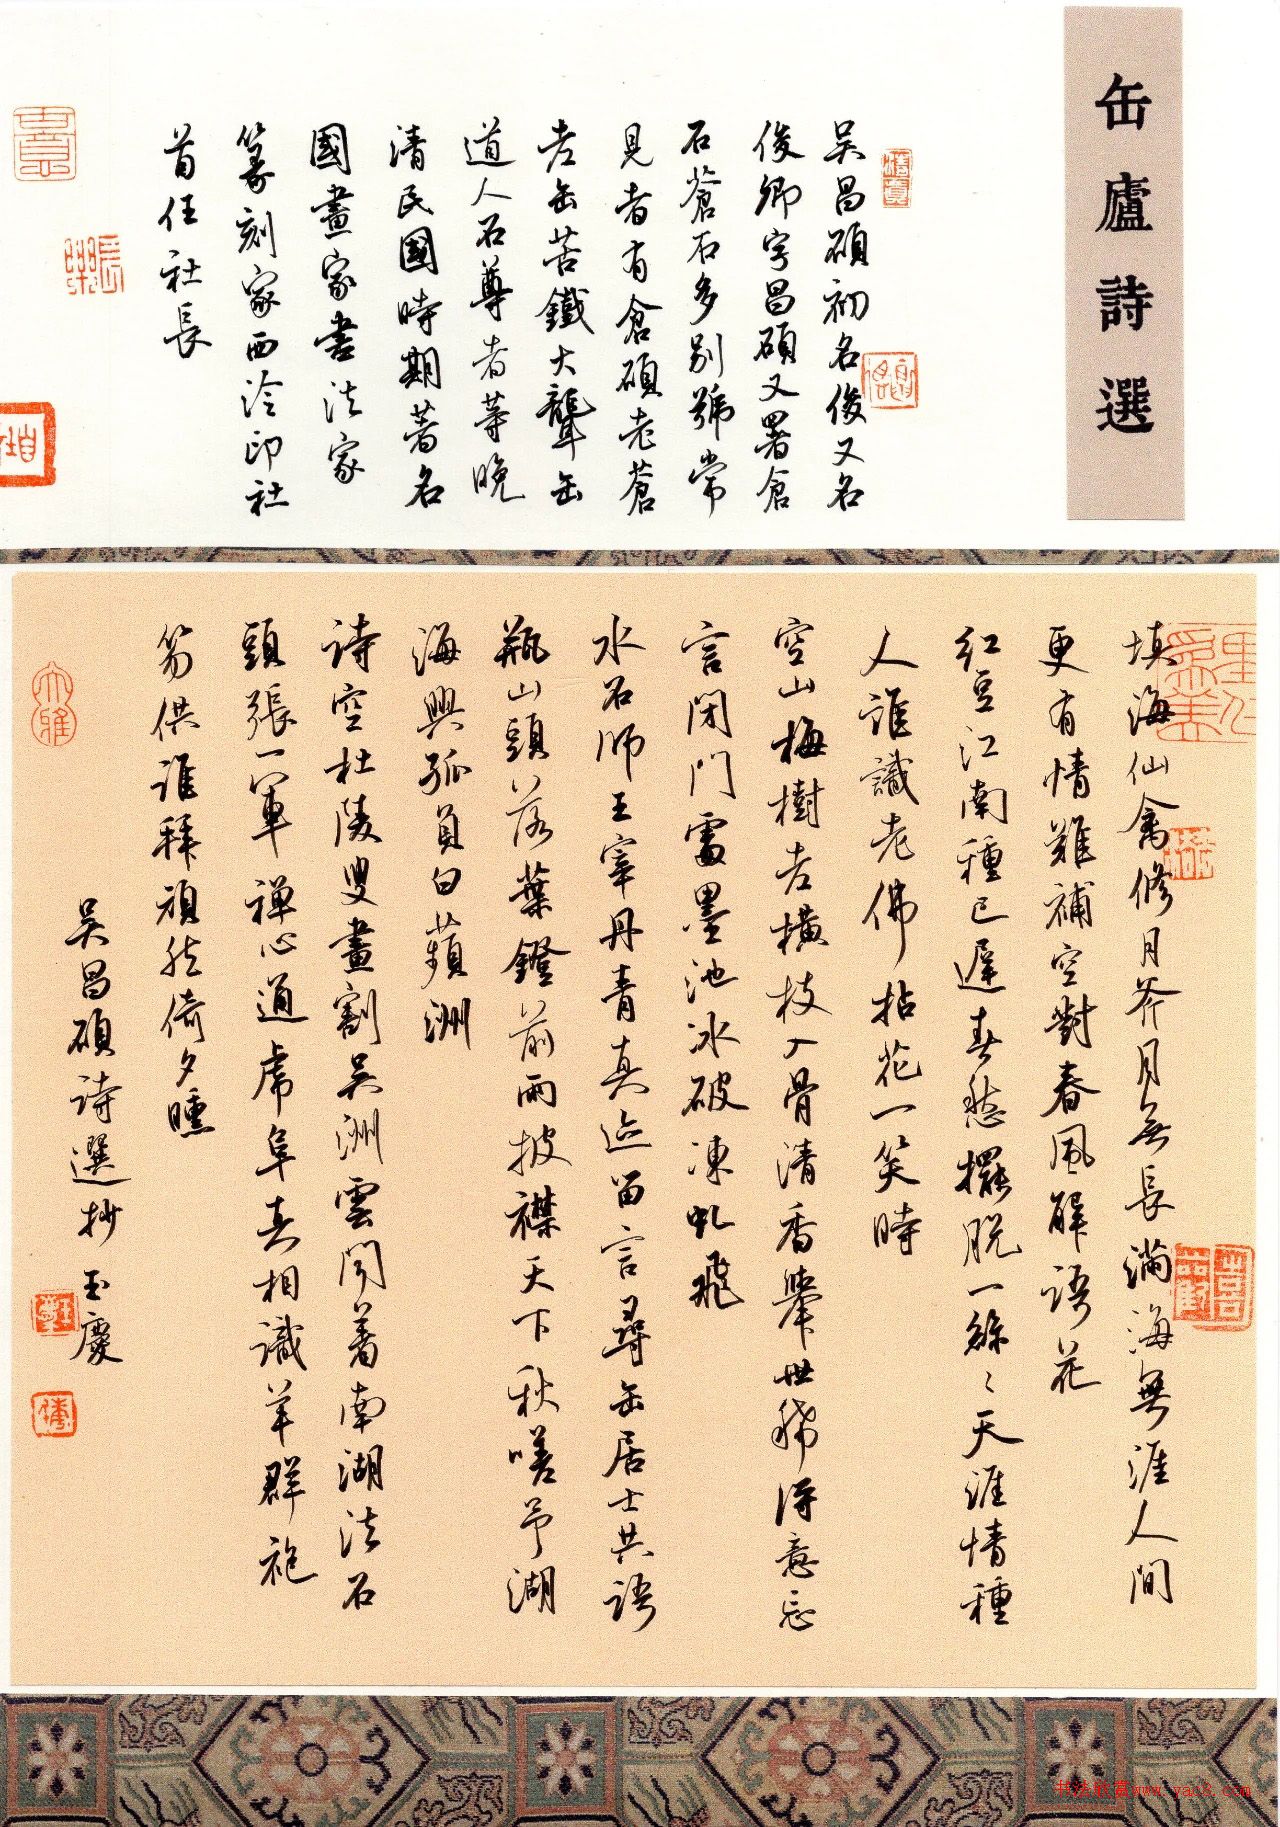 缶廬詩選
吴昌碩初名俊又名
俊卿字昌碩又署倉
石蒼石多别號常
見者有倉碩老蒼
老缶苦鐵大聾缶
道人石尊者等晚
清民國時期著名
國畫家書法家
篆刻家西泠印社
首任社長
填海仙禽修月斧月無長滿海無涯人間
更有情難補空對春風解語花
紅豆江南種已遲春愁擺脱一絲〻天涯情種
人誰識老佛拈花一笑時
空山梅樹老横枝入骨清香舉世稀得意忘
言閉門處墨池冰破凍虬飛
水石師王宰丹青真迹留言尋缶居士共語
瓶山頭落葉鐙前雨披襟天下秋嗟予湖
海興孤負白蘋洲
詩空杜陵叟畫割吴洲雲聞著南湖法石
頭張一軍禅心通虎阜真相識羊群袍
笏供誰拜頑然倚夕曛
吴昌碩詩選抄 玉慶
书法欣赏www.yac8.com